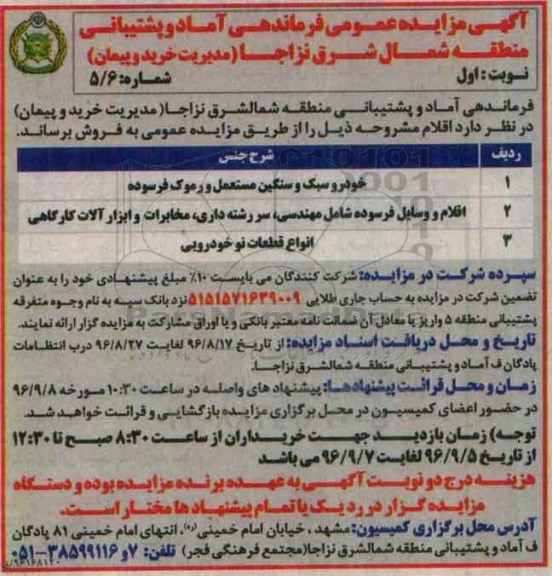 آگهی مزایده عمومی فرماندهی آماد و پشتیبانی
منطقه شمال شرق نزاجا (مدیریت خرید و پیمان)
نوبت: اول
شماره: ۵/۶
فرماندهی آماد و پشتیبانی منطقه شمالشرق نزاجا( مدیریت خرید و پیمان)
در نظر دارد اقلام مشروحه ذیل را از طریق مزایده عمومی به فروش برساند.
ردیف شرح جنس
۱ خودرو سبک و سنگین مستعمل و رموک فرسوده
۲ اقلام و وسایل فرسوده شامل مهندسی، سر رشته داری، مخابرات و ابزار آلات کارگاهی
۳ انواع قطعات نو خودرویی
سپرده شرکت در مزایده: شرکت کنندگان می بایست ۱۰٪ مبلغ پیشنهادی خود را به عنوان
تضمین شرکت در مزایده به حساب جاری طلایی ۵۱۵۱۵۷۱۶۳۹۰۰۹ نزد بانک سپه به نام وجوه متفرقه
پشتیبانی منطقه ۵ واریز یا معادل آن ضمانت نامه معتبر بانکی و یا اوراق مشارکت به مزایده گزار ارائه نمایند.
تاریخ و محل دریافت اسناد مزایده: از تاریخ ۹۶/۸/۱۷ لغایت ۹۶/۸/۲۷ درب انتظامات
پادگان ف آماد و پشتیبانی منطقه شمالشرق نزاجا.
زمان و محل قرائت پیشنهادها: پیشنهاد های واصله در ساعت ۱۰:۳۰ مورخه ۹۶/۹/۸
در حضور اعضای کمیسیون در محل برگزاری مزایده بازگشایی و قرائت خواهد شد.
توجه) زمان بازدید جهت خریداران از ساعت ۸:۳۰ صبح تا ۱۲:۳۰
از تاریخ ۹۶/۹/۵ لغایت ۹۶/۹/۷ می باشد
هزینه درج دو نوبت آگهی به عهده برنده مزایده بوده و دستگاه
مزایده گزار در رد یک یا تمام پیشنهاد ها مختار است.
آدرس محل برگزاری کمیسیون: مشهد ، خیابان امام خمینی(ره)، انتهای امام خمینی ۸۱ پادگان
ف آماد و پشتیبانی منطقه شمالشرق نزاجا(مجتمع فرهنگی فجر) تلفن: ۷ و ۳۸۵۹۹۱۱۶-۰۵۱